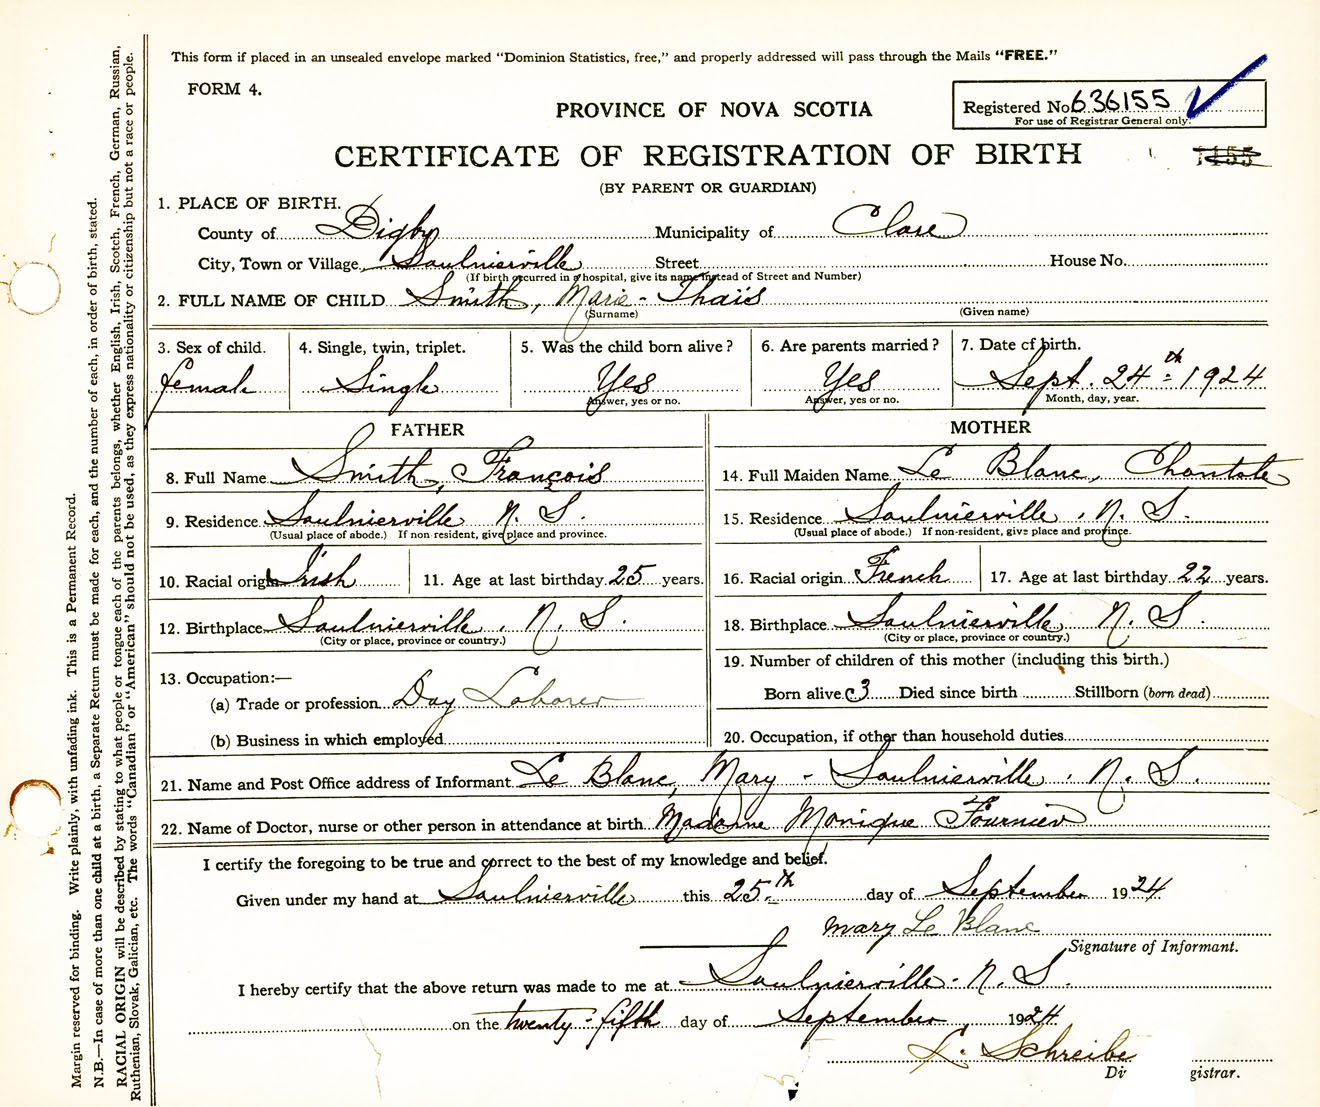 This form if placed in an unsealed envelope marked "Dominion Statistics, free," and properly addressed will pass through the Mails "FREE."
FORM 4.
PROVINCE OF NOVA SCOTIA
Registered No. 636155
For use of Registrar General only.
CERTIFICATE OF REGISTRATION OF BIRTH
(BY PARENT OR GUARDIAN)
1. PLACE OF BIRTH.
County of Digby Municipality of Clare
City, Town or Village Saulnierville Street House No.
(If birth occurred in a hospital, give its name instead of Street and Number)
2. FULL NAME OF CHILD Smith, Marie-Thaïs
(Surname) (Given name)
3. Sex of child. 4. Single, twin, triplet. 5. Was the child born alive? 6. Are parents married? 7. Date of birth.
female Single Yes Yes Sept. 24th - 1924
Answer, yes or no. Answer, yes or no. Month, day, year.
FATHER MOTHER
8. Full Name Smith, François 14. Full Maiden Name Le Blanc, Chantale
9. Residence Saulnierville N. S. 15. Residence Saulnierville, N. S.
(Usual place of abode.) If non-resident, give place and province. (Usual place of abode.) If non-resident, give place and province.
10. Racial origin Irish 11. Age at last birthday 25 years. 16. Racial origin French 17. Age at last birthday 22 years.
12. Birthplace Saulnierville, N. S. 18. Birthplace Saulnierville, N. S.
(City or place, province or country.) (City or place, province or country.)
13. Occupation:— 19. Number of children of this mother (including this birth.)
(a) Trade or profession Day Laborer Born alive 3 Died since birth Stillborn (born dead)
(b) Business in which employed 20. Occupation, if other than household duties
21. Name and Post Office address of Informant Le Blanc, Mary - Saulnierville, N. S.
22. Name of Doctor, nurse or other person in attendance at birth Madame Monique Fournier
I certify the foregoing to be true and correct to the best of my knowledge and belief.
Given under my hand at Saulnierville this 25th day of September 1924
Mary Le Blanc
Signature of Informant.
I hereby certify that the above return was made to me at Saulnierville - N. S.
on the twenty-fifth day of September 1924
L. Schreibe
Di gistrar.
Margin reserved for binding. Write plainly, with unfading ink. This is a Permanent Record.
N.B.—In case of more than one child at a birth, a Separate Return must be made for each, and the number of each, in order of birth, stated.
RACIAL ORIGIN will be described by stating to what people or tongue each of the parents belongs, whether English, Irish, Scotch, French, German, Russian,
Ruthenian, Slovak, Galician, etc. The words "Canadian" or "American" should not be used, as they express nationality or citizenship but not a race or people.